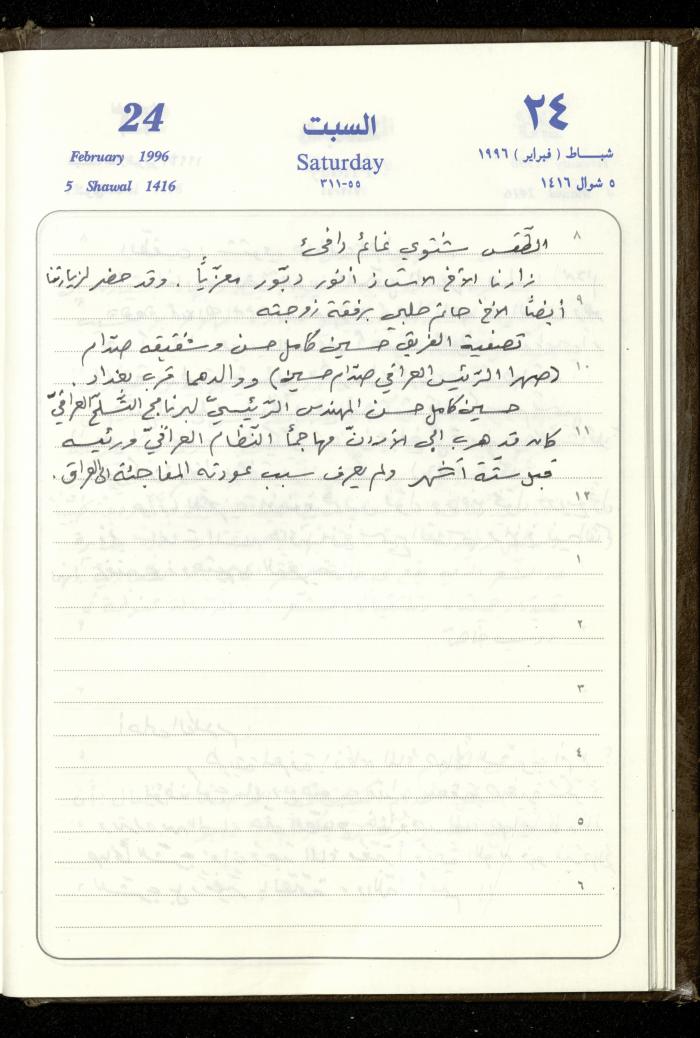 24
February 1996
5 Shawal 1416
السبت
Saturday
٣١١-٥٥
٢٤
شباط ( فبراير ) ١٩٩٦
٥ شوال ١٤١٦
٨
الطقس شتوي غائم دافئ
زارنا الأخ الاستاذ أنور دبّور معزّياً . وقد حضر لزيارتنا
٩
أيضاً الأخ حاتم حلبي برفقة زوجته
تصفية الفريق حسين كامل حسن وشقيقه صدّام
١٠
(صهرا الرّئيس العراقي صدّام حسين) ووالدهما قرب بغداد .
حسين كامل حسن المهندس الرّئيسيّ لبرنامج التّسلّح العراقيّ
١١
كان قد هرب الى الأردنّ مهاجماً النّظام العراقيّ ورئيسه
قبل ستّة أشهر ولم يعرف سبب عودته المفاجئة الى العراق .
١٢
١
٢
٣
٤
٥
٦